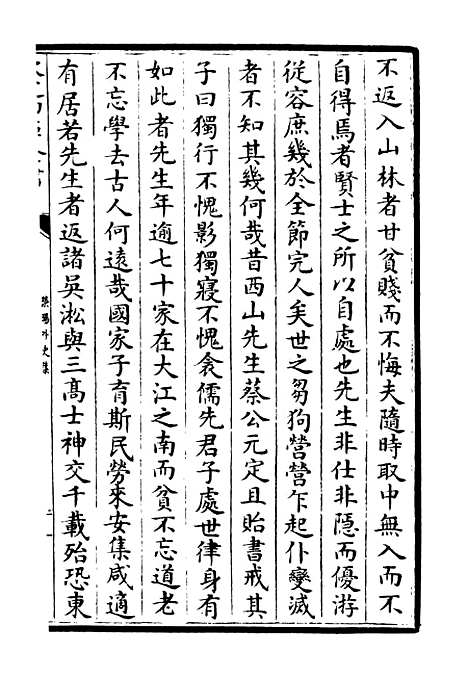 不返入山林者甘貧賤而不悔夫隨時取中無入而不
自得焉者賢士之所以自處也先生非仕非隱而優游
從容庶幾於全節完人矣世之芻狗營營乍起仆變滅
者不知其幾何哉昔西山先生蔡公元定且貽書戒其
子曰獨行不愧影獨寢不愧衾儒先君子處世律身有
如此者先生年逾七十家在大江之南而貧不忘道老
不忘學去古人何遠哉國家子育斯民勞來安集咸適
有居若先生者返諸吳淞與三髙士神交千載殆恐東
滎陽外史集